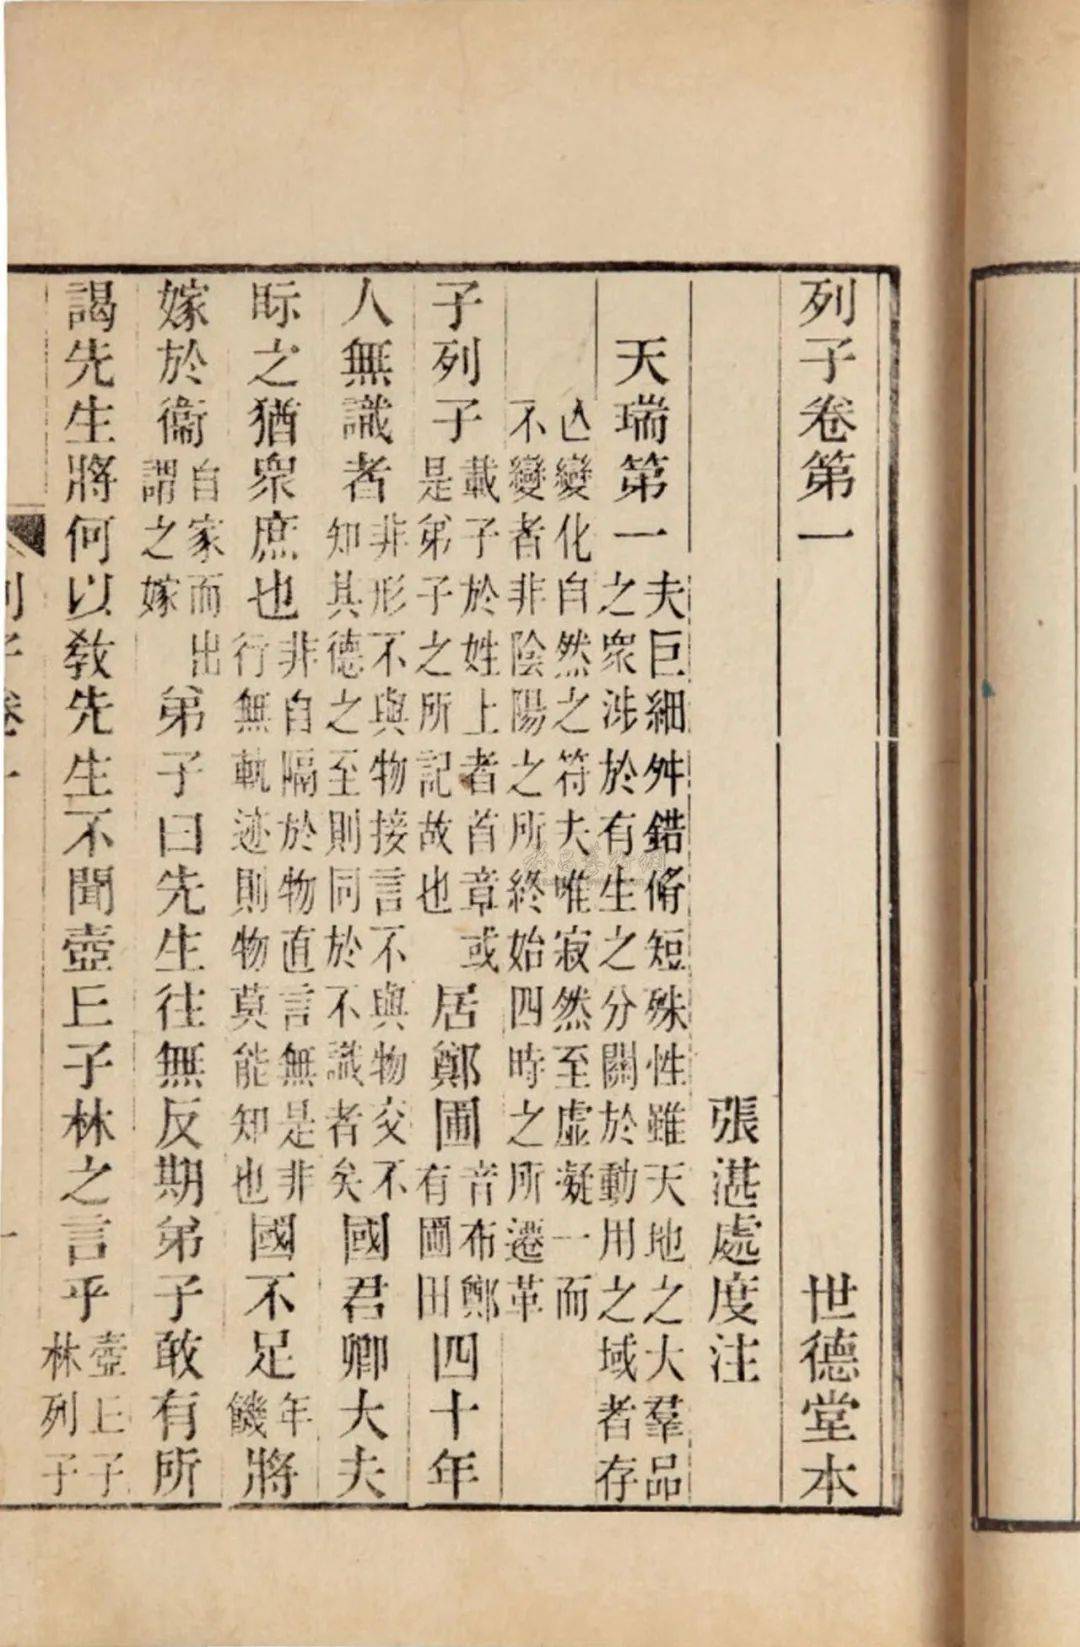 列子卷第一 世德堂本
張湛處度注
天瑞第一 夫巨細舛錯脩短殊性雖天地之大羣品之衆涉於有生之分關於動用之域者存
亾變化自然之符夫唯寂然至虛凝一而不變者非陰陽之所終始四時之所遷革
子列子載子於姓上者首章或是弟子之所記故也居鄭圃音布鄭有圃田四十年
人無識者非形不與物接言不與物交不知其德之至則同於不識者矣國君卿大夫
眎之猶衆庶也非自隔於物直言無是非行無軌迹則物莫能知也國不足年饑將
嫁於衞自家而出謂之嫁弟子曰先生往無反期弟子敢有所
謁先生將何以敎先生不聞壺𠀉子林之言乎壺𠀉子林列子
列子卷一 一